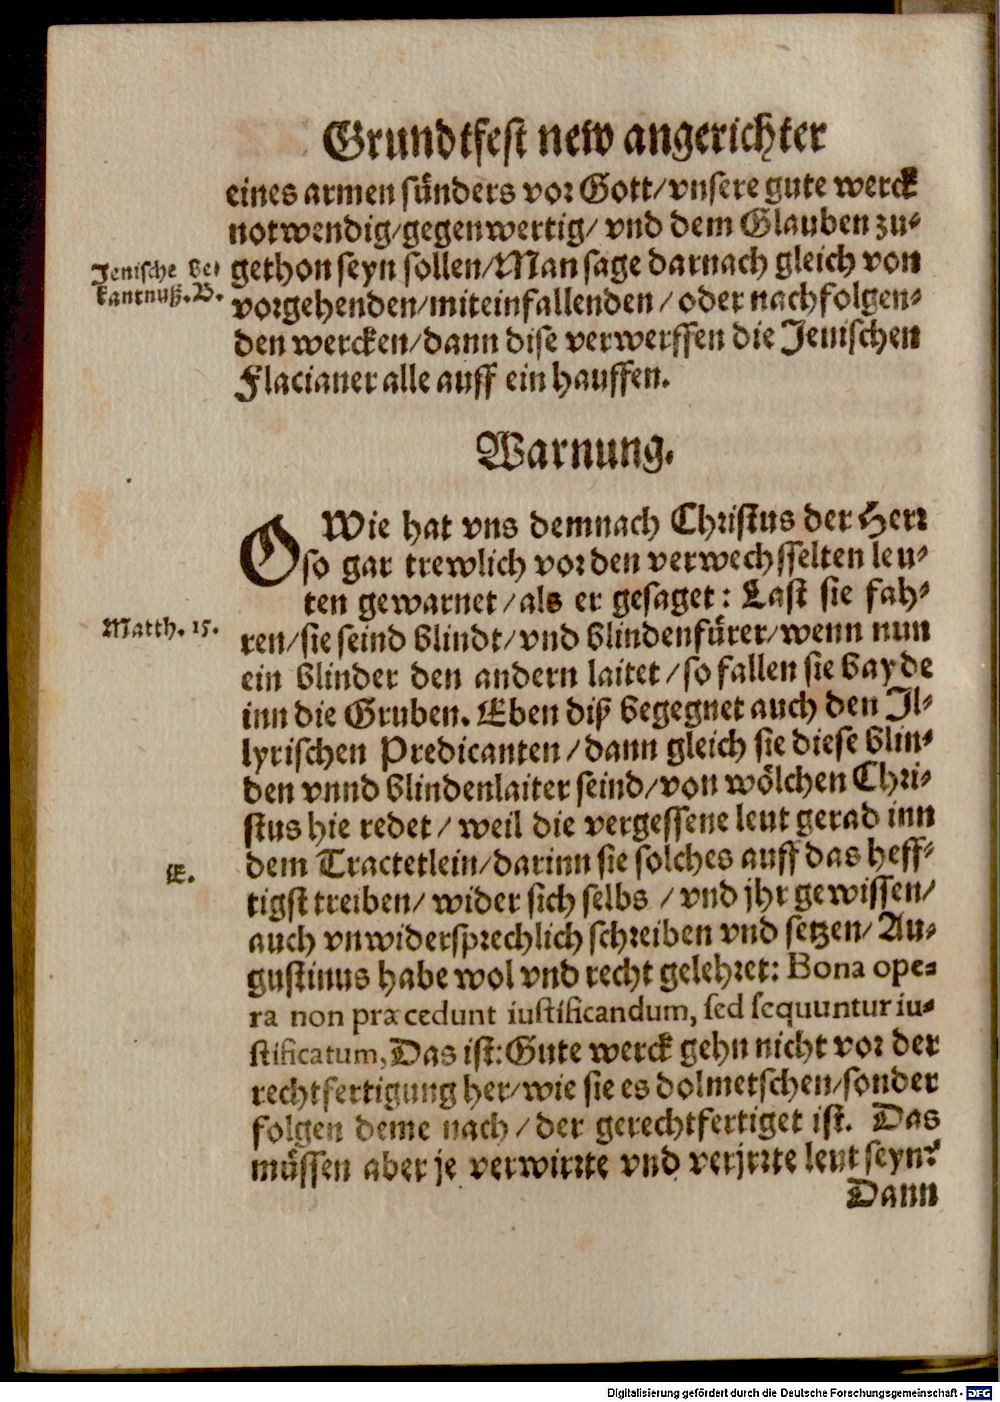 Grundtfest new angerichter
eines armen sünders vor Gott/vnsere gute werck
notwendig/gegenwertig/ vnd dem Glauben zu-
Jenische be-
kantnuß.B.
gethon seyn sollen/Man sage darnach gleich von
vorgehenden/miteinfallenden / oder nachfolgen-
den wercken/dann dise verwerffen die Jenischen
Flacianer alle auff ein hauffen.
Warnung.
O Wie hat vns demnach Christus der Herr
so gar trewlich vor den verwechsselten leu-
ten gewarnet/als er gesaget: Last sie fah-
Matth. 15.
ren/sie seind blindt/vnd blindenfürer/wenn nun
ein blinder den andern laitet/so fallen sie bayde
inn die Gruben. Eben diß begegnet auch den Jl-
lyrischen Predicanten/dann gleich sie diese blin-
den vnnd blindenlaiter seind/von wölchen Chri-
stus hie redet/ weil die vergessene leut gerad inn
E.
dem Tractetlein/darinn sie solches auff das heff-
tigst treiben/ wider sich selbs /vnd jhr gewissen/
auch vnwidersprechlich schreiben vnd setzen/ Au-
gustinus habe wol vnd recht gelehret: Bona ope-
ra non præcedunt iustificandum, sed sequuntur iu-
stificatum, Das ist: Gute werck gehn nicht vor der
rechtfertigung her/wie sie es dolmetschen/sonder
folgen deme nach/der gerechtfertiget ist. Das
müssen aber je verwirrte vnd verjrrte leut seyn?
Dann
Digitalisierung gefördert durch die Deutsche Forschungsgemeinschaft - DFG